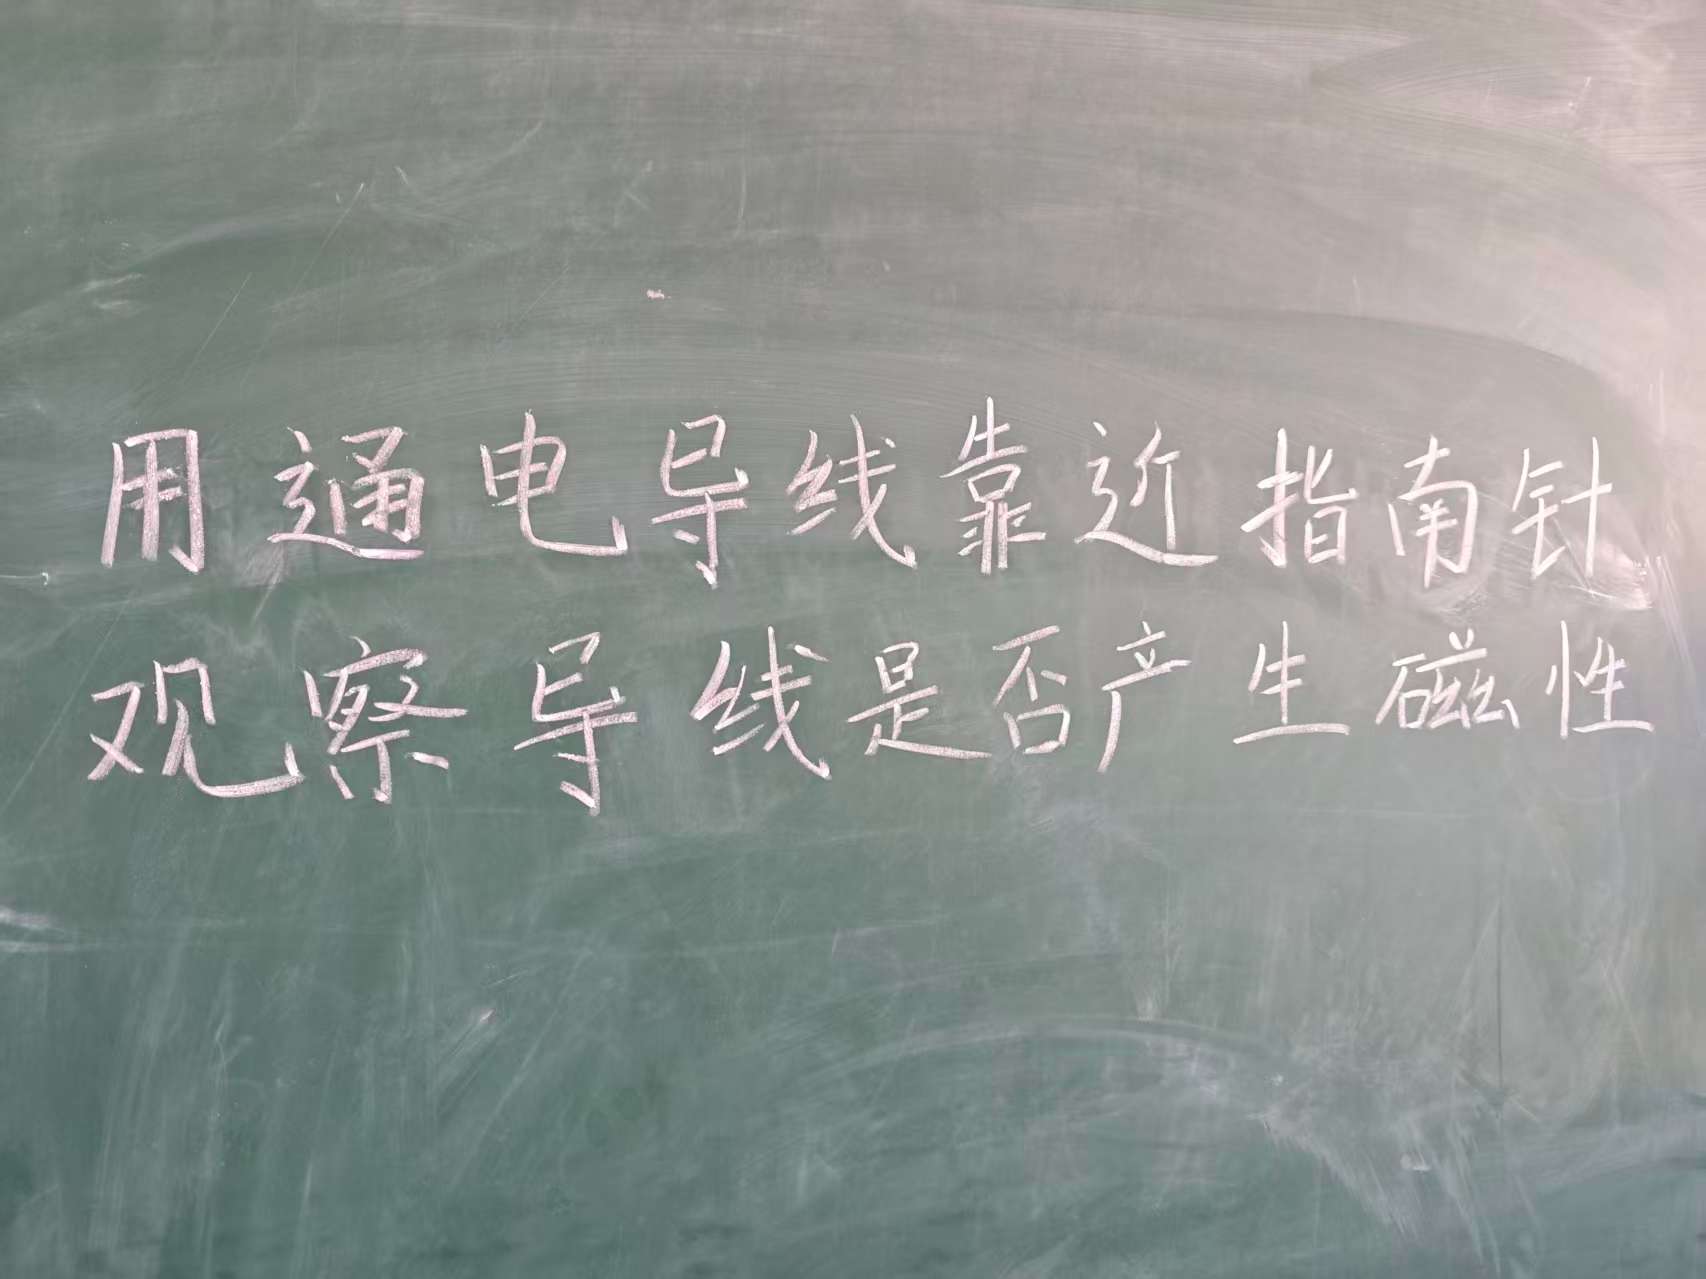 用通电导线靠近指南针
观察导线是否产生磁性